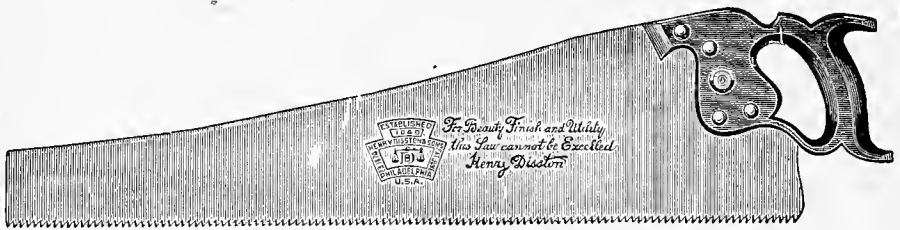 ESTABLISHED
1840
HENRY DISSTON & SONS
PHILADELPHIA
U.S.A.
For Beauty Finish and Utility
this Saw cannot be Excelled
Henry Disston